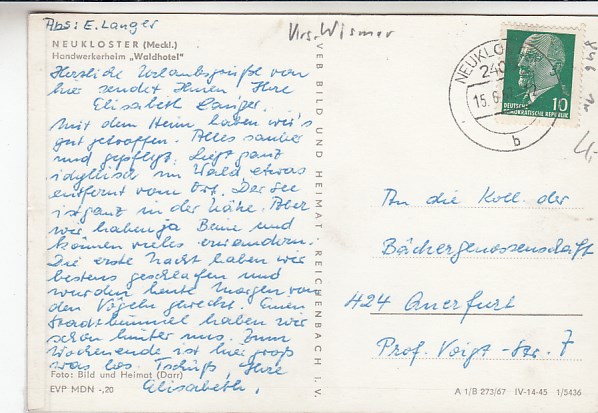 Abs: E. Langer
NEUKLOSTER (Meckl.)
Handwerkerheim „Waldhotel"
Herzliche Urlaubsgrüße von
hier sendet Ihnen, Ihre
Elisabeth Langer.
Mit dem Heim haben wir's
gut getroffen. Alles sauber
und gepflegt. Liegt ganz
idyllisch im Wald etwas
entfernt vom Ort. Der See
ist ganz in der Nähe. Aber
wir haben ja Beine und
können vieles erwandern.
Die erste Nacht haben wir
bestens geschlafen und
wurden heute Morgen von
den Vögeln geweckt. Einen
Stadtbummel haben wir
schon hinter uns. Zum
Wochenende ist hier groß
was los. Tschüß, Ihre
Elisabeth.
Foto: Bild und Heimat (Darr)
EVP MDN -,20
VEB BILD UND HEIMAT REICHENBACH I. V.
Krs. Wismar
NEUKLO
240
15.6.
b
DEUTSCHE
DEMOKRATISCHE REPUBLIK
10
An die Koll. der
Bäckergenossenschaft
424 Querfurt
Prof. Voigt-Str. 7
A 1/B 273/67 IV-14-45 1/5436